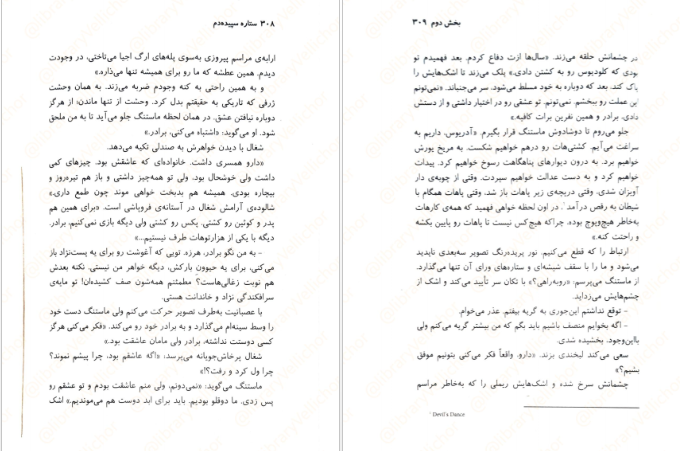 ۳۰۸ ستاره سپیده‌دم
ارابه‌ی مراسم پیروزی به‌سوی پله‌های ارگ اجیا می‌تاختی، در وجودت
دیدم. همین عطشه که ما رو برای همیشه تنها می‌ذاره.»
و به همین راحتی به کنه وجودم ضربه می‌زند. به همان وحشت
ژرفی که تاریکی به حقیقتم بدل کرد. وحشت از تنها ماندن؛ از هرگز
دوباره نیافتن عشق. در همان لحظه ماستنگ جلو می‌آید تا به من ملحق
شود. او می‌گوید: «اشتباه می‌کنی، برادر.»
شغال با دیدن خواهرش به صندلی تکیه می‌دهد.
«دارو همسری داشت. خانواده‌ای که عاشقش بود. چیزهای کمی
داشت ولی خوشحال بود. ولی تو همه‌چیز داشتی و باز هم تیره‌روز و
بیچاره بودی. همیشه هم بدبخت خواهی موند چون طمع داری.»
شالوده‌ی آرامش شغال در آستانه‌ی فروپاشی است. «برای همین هم
پدر و کوئین رو کشتی. پکس رو کشتی ولی دیگه بازی نمی‌کنیم، برادر.
دیگه با یکی از هزارتوهات طرف نیستیم...»
- به من نگو برادر، هرزه. تویی که آغوشت رو برای یه پست‌نژاد باز
می‌کنی. برای یه حیوون بارکش، دیگه خواهر من نیستی. نکنه بعدش
هم نوبت زغالی‌هاست؟ مطمئنم همه‌شون صف کشیده‌ان! تو مایه‌ی
سرافکندگی نژاد و خاندانت هستی.
با عصبانیت به‌طرف تصویر حرکت می‌کنم ولی ماستنگ دست خود
را وسط سینه‌ام می‌گذارد و به برادر خود رو می‌کند. «فکر می‌کنی هرگز
کسی دوستت نداشته، برادر ولی مامان عاشقت بود.»
شغال پرخاش‌جویانه می‌پرسد: «اگه عاشقم بود، چرا پیشم نموند؟
چرا ول کرد و رفت؟!»
ماستنگ می‌گوید: «نمی‌دونم. ولی منم عاشقت بودم و تو عشقم رو
پس زدی. ما دوقلو بودیم. باید برای ابد دوست هم می‌موندیم.» اشک
بخش دوم ۳۰۹
در چشمانش حلقه می‌زند. «سال‌ها ازت دفاع کردم. بعد فهمیدم تو
بودی که کلودیوس رو به کشتن دادی.» پلک می‌زند تا اشک‌هایش را
پاک کند. بعد که دوباره به خود مسلط می‌شود، سر می‌جنباند. «نمی‌تونم
این عملت رو ببخشم. نمی‌تونم. تو عشقی رو در اختیار داشتی و از دستش
دادی، برادر و همین نفرین برات کافیه.»
جلو می‌روم تا دوشادوش ماستنگ قرار بگیرم. «آدریوس، داریم به
سراغت می‌آیم. کشتی‌هات رو درهم خواهیم شکست. به مریخ یورش
خواهیم برد. به درون دیوارهای پناهگاهت رسوخ خواهیم کرد. پیدات
خواهیم کرد و به دست عدالت خواهیم سپردت. وقتی از چوبه‌ی دار
آویزان شدی، وقتی دریچه‌ی زیر پاهات باز شد، وقتی پاهات همگام با
شیطان به رقص درآمد¹، در اون لحظه خواهی فهمید که همه‌ی کارهات
به‌خاطر هیچ‌وپوچ بوده. چراکه هیچ‌کس نیست تا پاهات رو پایین بکشه
و راحتت کنه.»
ارتباط را که قطع می‌کنیم، نور پریده‌رنگ تصویر سه‌بعدی ناپدید
می‌شود و ما را با سقف شیشه‌ای و ستاره‌های ورای آن تنها می‌گذارد.
از ماستنگ می‌پرسم: «روبه‌راهی؟» با تکان سر تأیید می‌کند و اشک از
چشم‌هایش می‌زداید.
- توقع نداشتم این‌جوری به گریه بیفتم. عذر می‌خوام.
- اگه بخوایم منصف باشیم باید بگم که من بیشتر گریه می‌کنم ولی
بااین‌وجود، بخشیده شدی.
سعی می‌کند لبخندی بزند. «دارو. واقعاً فکر می‌کنی بتونیم موفق
بشیم؟»
چشمانش سرخ شده و اشک‌هایش ریملی را که به‌خاطر مراسم
¹ Devil's Dance